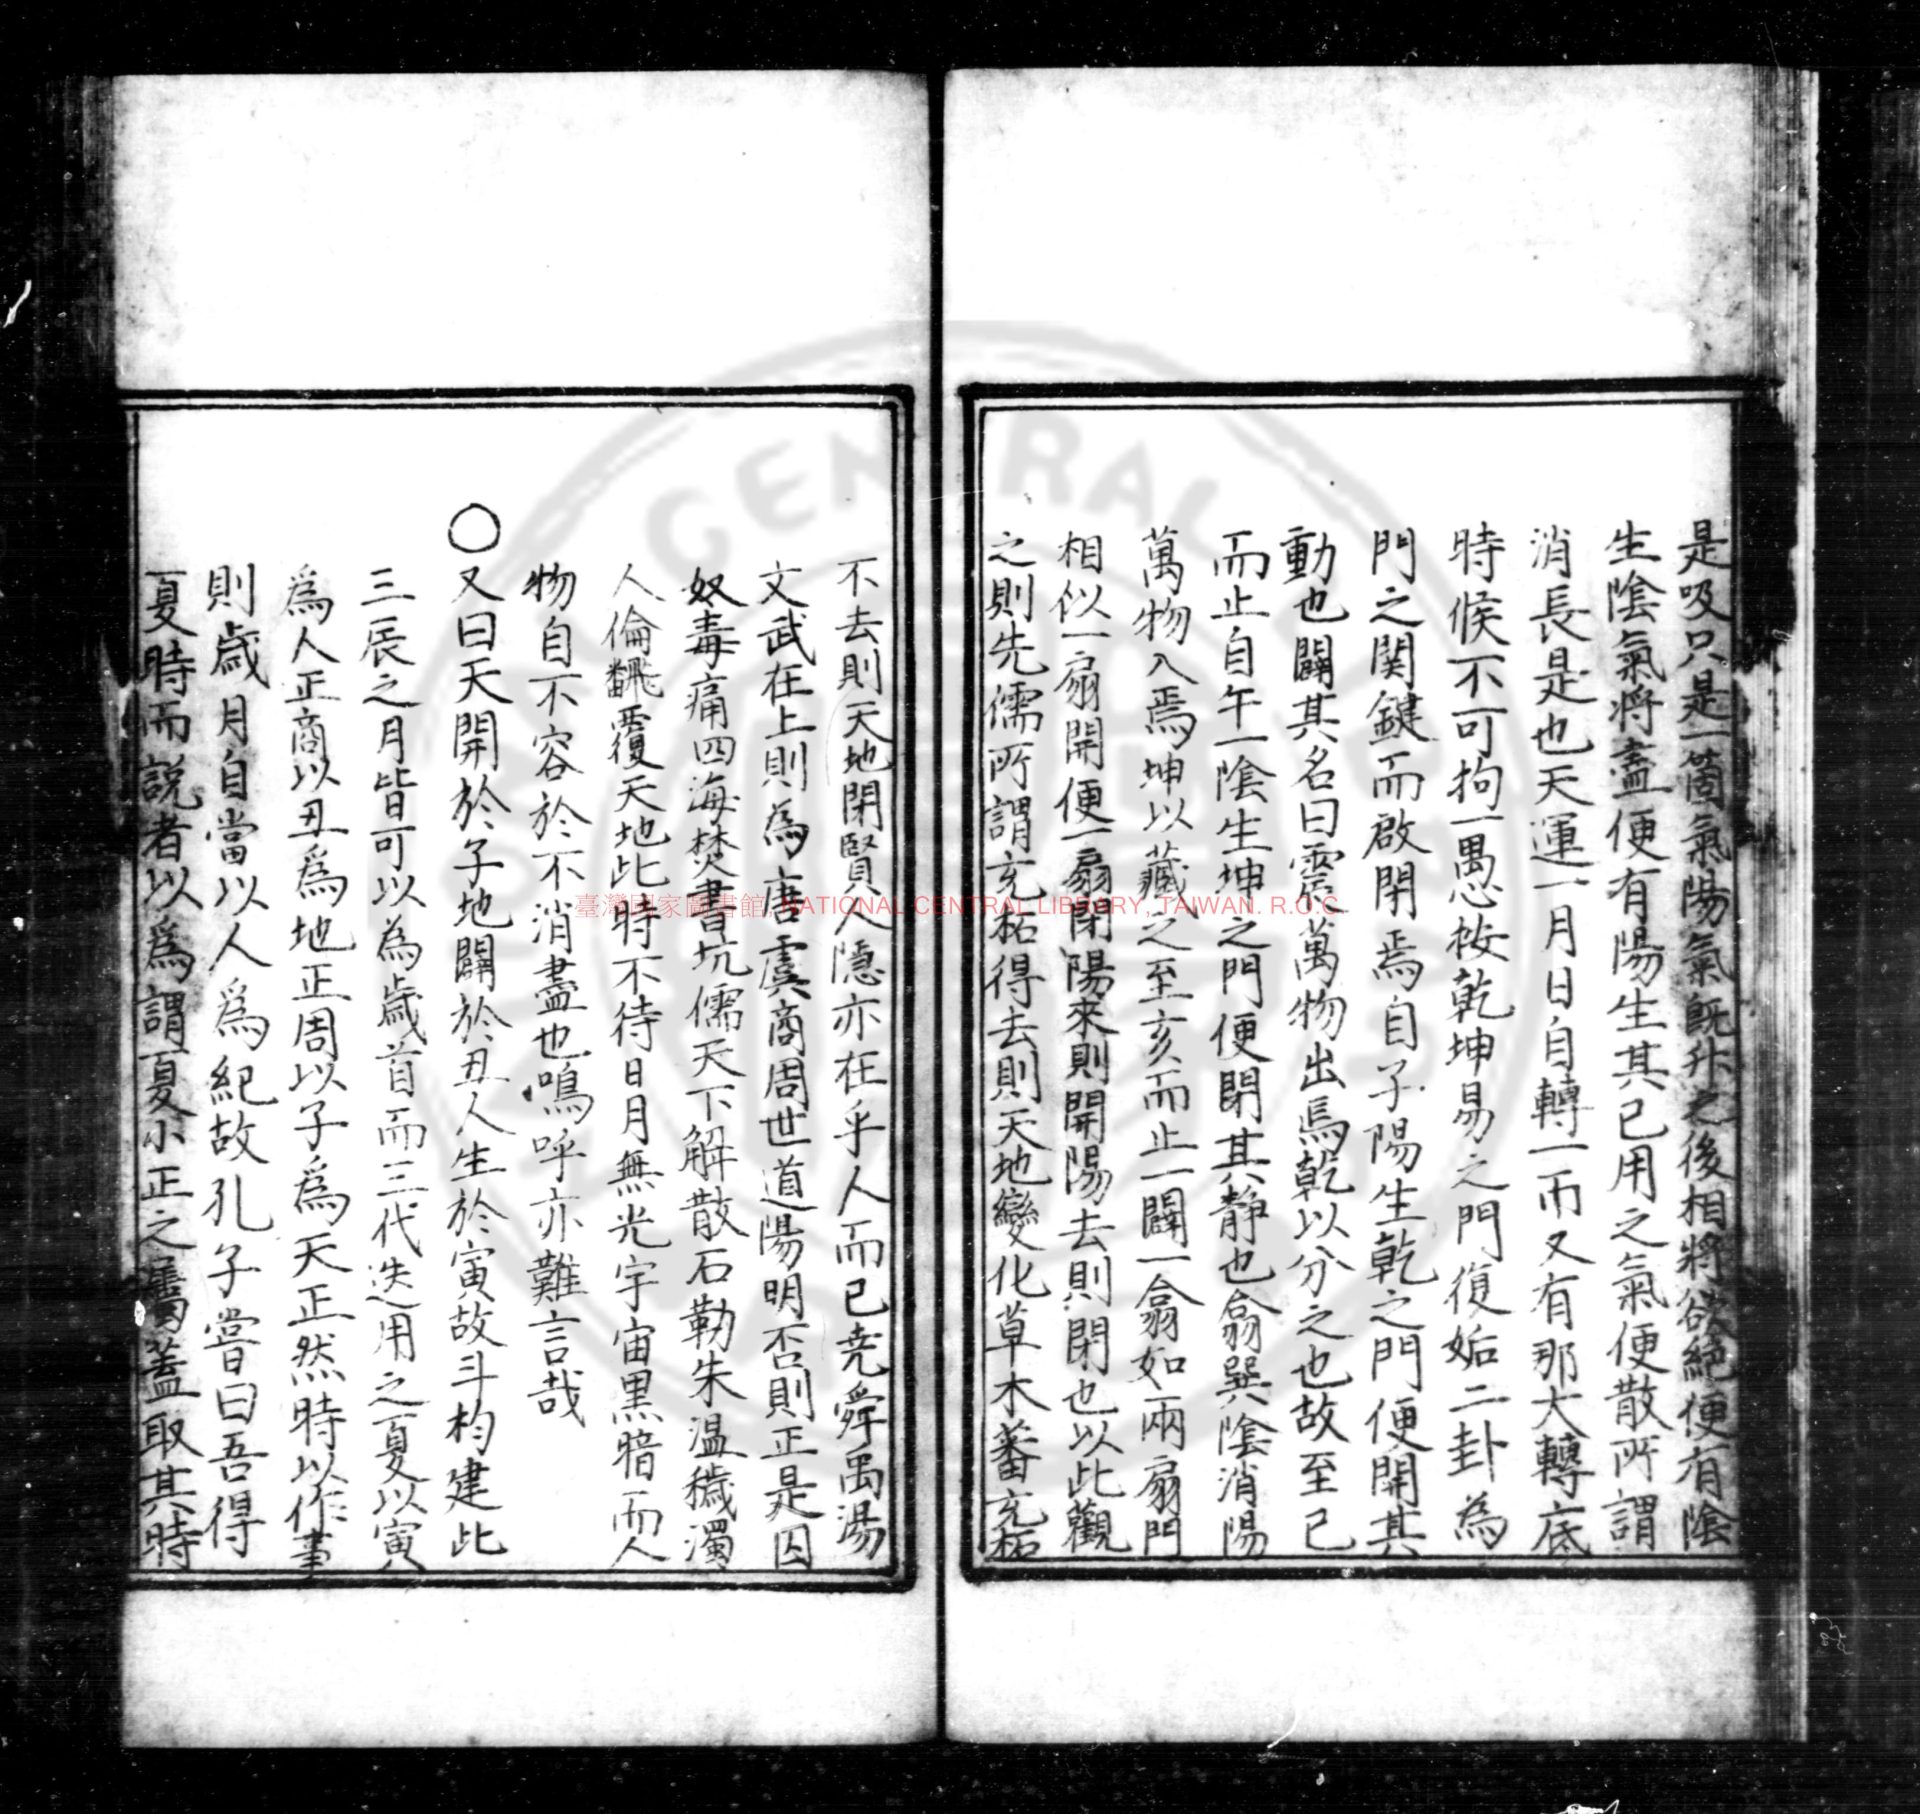 是吸只是一箇氣陽氣旣升之後相將欲絕便有陰
生陰氣將盡便有陽生其已用之氣便散所謂
消長是也天運一月日自轉一而又有那大轉底
時候不可拘一愚按乾坤易之門復姤二卦為
門之関鍵而啟閉焉自子陽生乾之門便開其
動也闢其名曰震萬物出焉乾以分之也故至巳
而止自午一陰生坤之門便閉其静也翕巽陰消陽
萬物入焉坤以藏之至亥而止一闢一翕如兩扇門
相似一扇開便一扇閉陽來則開陽去則閉也以此觀
之則先儒所謂充拓得去則天地變化草木蕃充拓
不去則天地閉賢人隱亦在乎人而已堯舜禹湯
文武在上則為唐虞商周世道陽明否則正是囚
奴毒痛四海焚書坑儒天下解散石勒朱温穢濁
人倫飜覆天地此時不待日月無光宇宙黑暗而人
物自不容於不消盡也嗚呼亦難言哉
○又曰天開於子地闢於丑人生於寅故斗杓建此
三辰之月皆可以為歲首而三代迭用之夏以寅
為人正商以丑爲地正周以子爲天正然時以作事
則歲月自當以人爲紀故孔子嘗曰吾得
夏時而説者以爲謂夏小正之屬蓋取其時
臺灣國家圖書館, NATIONAL CENTRAL LIBRARY, TAIWAN. R.O.C